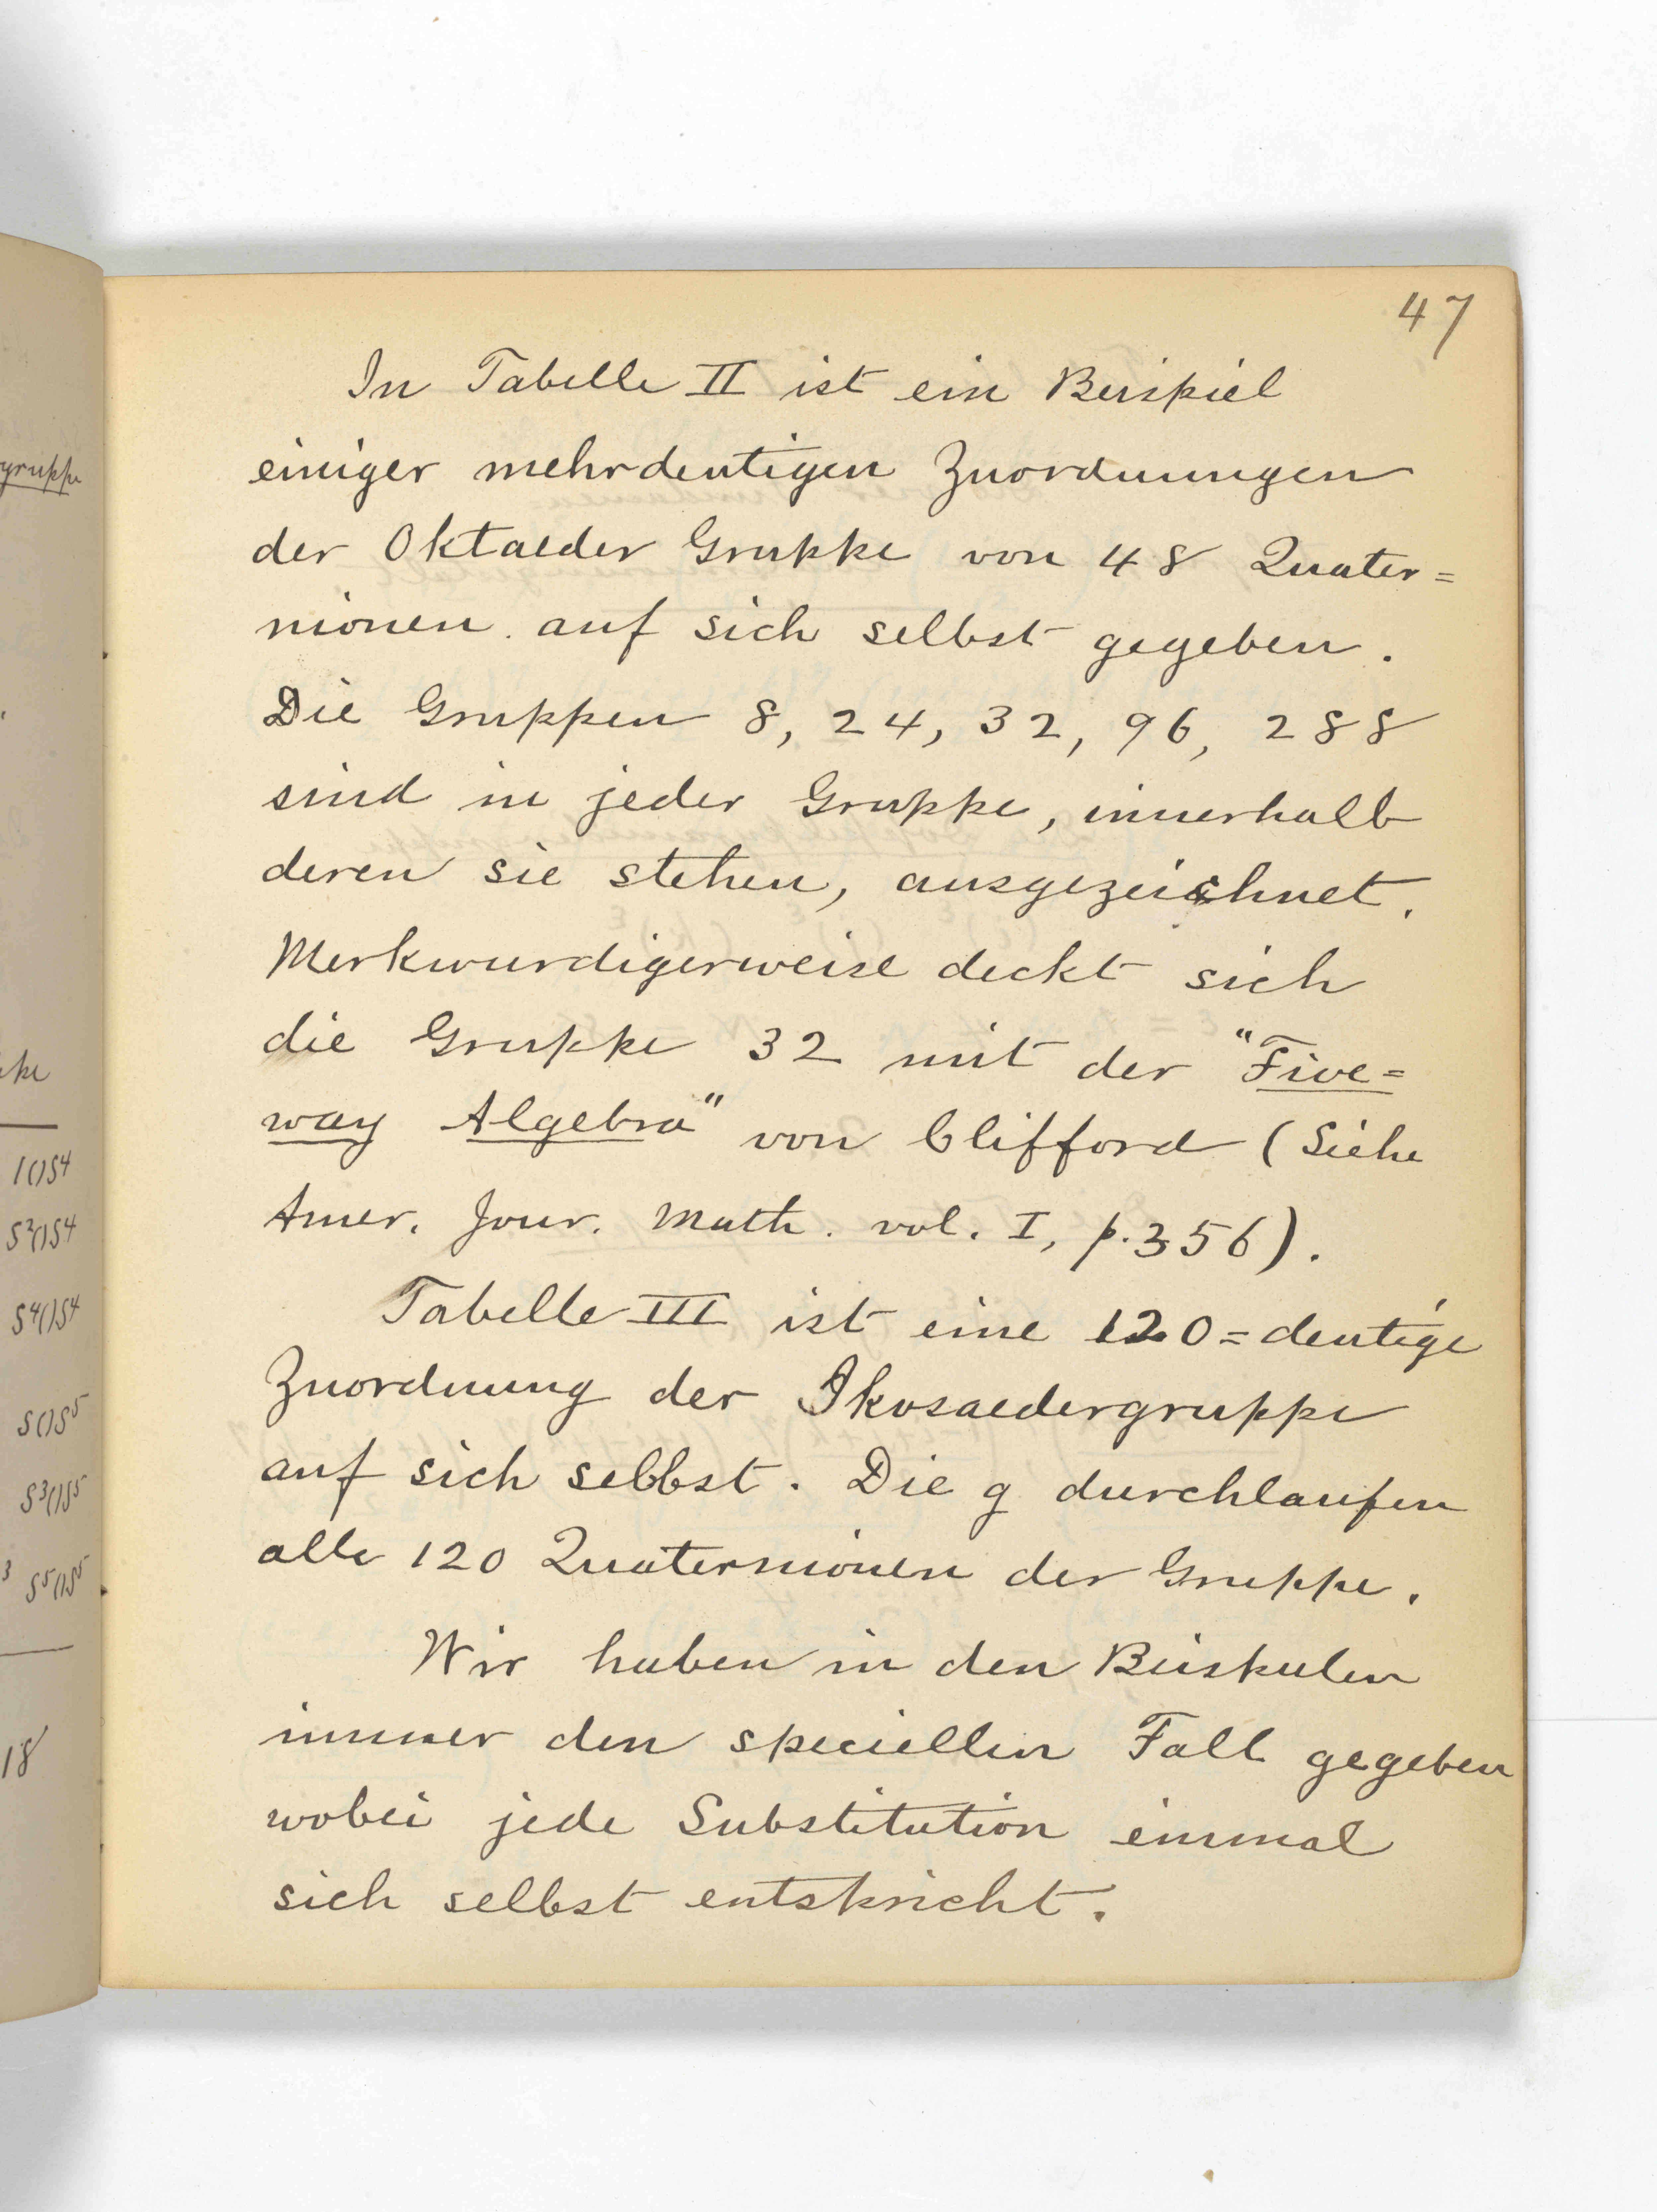 47
In Tabelle II ist ein Beispiel
einiger mehrdeutigen Zuordnungen
der Oktaeder Gruppe von 48 Quater=
nionen auf sich selbst gegeben.
Die Gruppen 8, 24, 32, 96, 288
sind in jeder Gruppe, innerhalb
deren sie stehen, ausgezeichnet.
Merkwurdigerweise deckt sich
die Gruppe 32 mit der "Five=
way Algebra" von Clifford (Siehe
Amer. Jour. Math. vol. I, p. 356).
Tabelle III ist eine 120=deutige
Zuordnung der Ikosaedergruppe
auf sich selbst. Die g durchlaufen
alle 120 Quaternionen der Gruppe.
Wir haben in den Beispielen
immer den speciellen Fall gegeben
wobei jede Substitution einmal
sich selbst entspricht.
gruppe
1()S⁴
S²()S⁴
S⁴()S⁴
S()S⁵
S³()S⁵
S⁵()S⁵
18